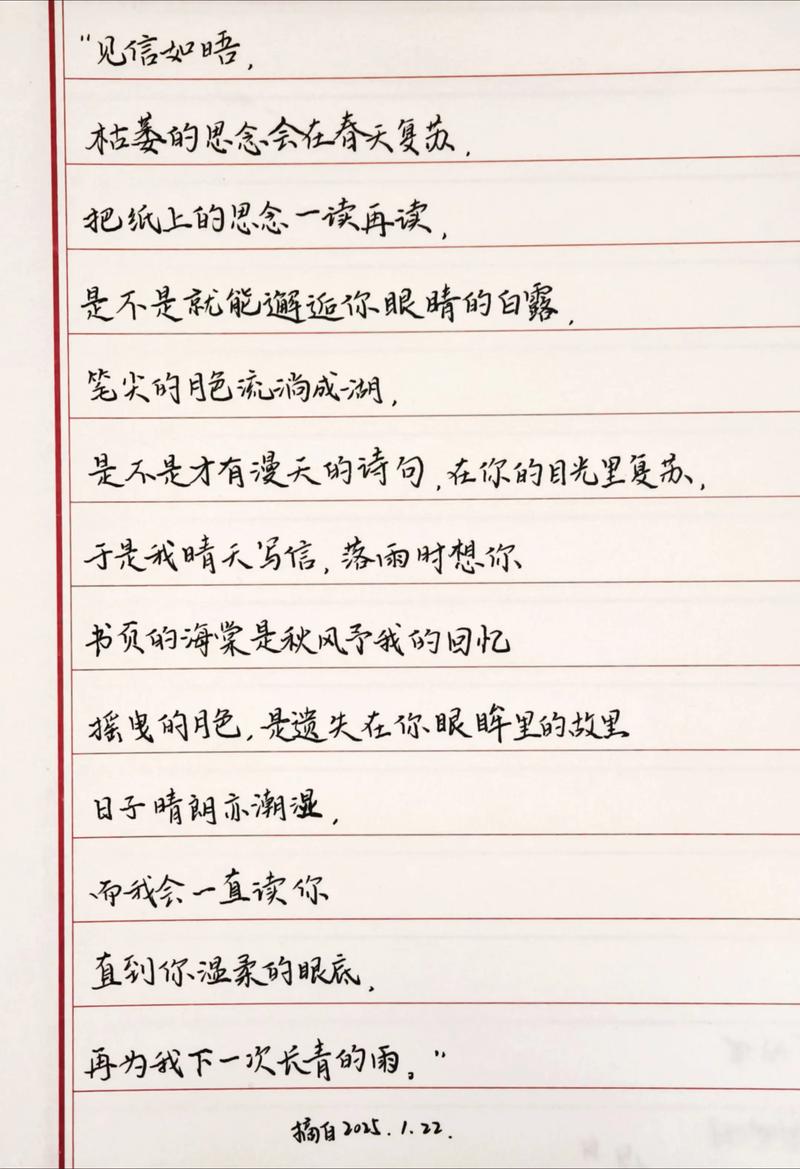 “见信如晤，
枯萎的思念会在春天复苏，
把纸上的思念一读再读，
是不是就能邂逅你眼睛的白露，
笔尖的月色流淌成湖，
是不是才有漫天的诗句，在你的目光里复苏，
于是我晴天写信，落雨时想你
书页的海棠是秋风予我的回忆
摇曳的月色，是遗失在你眼眸里的故里
日子晴朗亦潮湿，
而我会一直读你
直到你温柔的眼底，
再为我下一次长青的雨。”
摘自2025.1.22.